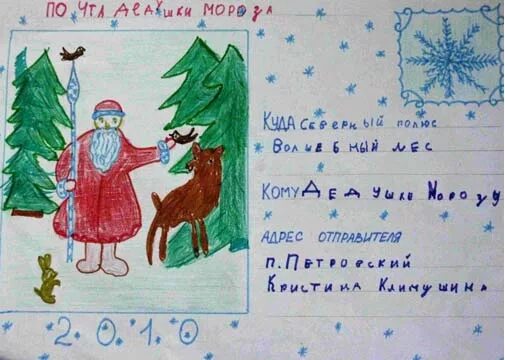 ПО ЧТА ДЕДУШКИ МОРОЗА
КУДА СЕВЕРНЫЙ ПОЛЮС
ВОЛШЕБНЫЙ ЛЕС
КОМУ ДЕДУШКЕ МОРОЗУ
АДРЕС ОТПРАВИТЕЛЯ
П. ПЕТРОВСКИЙ
КРИСТИНА КЛИМУШИНА
2.0.1.0